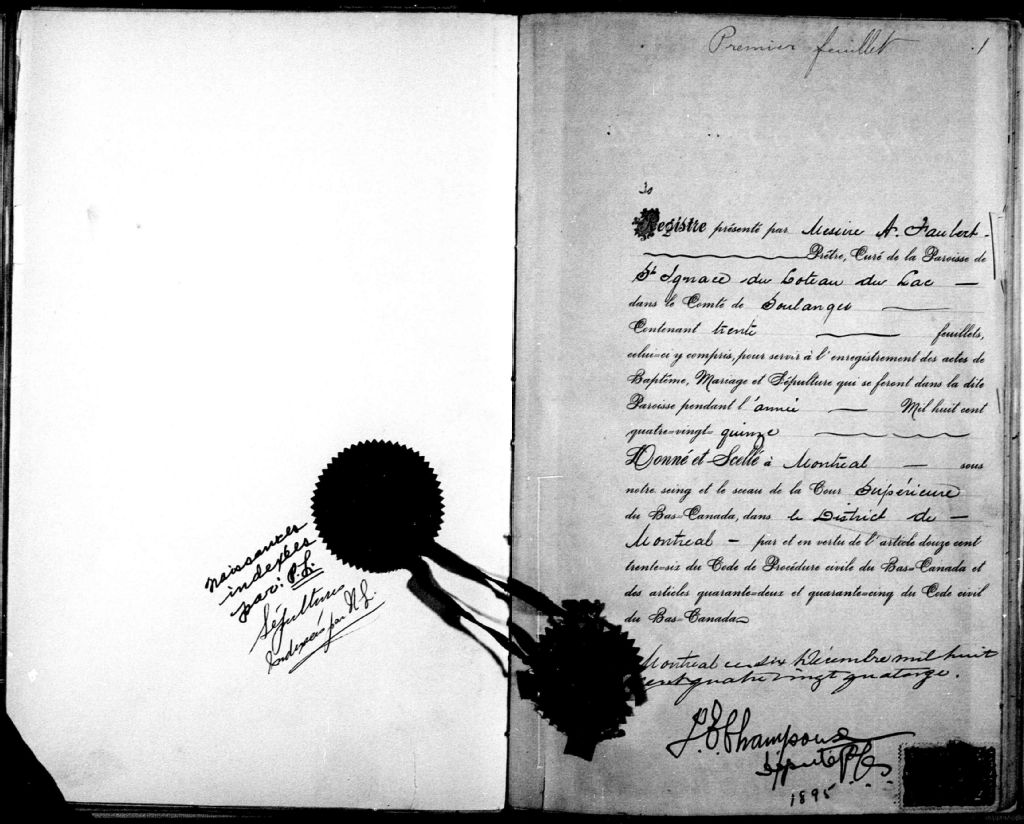 naissances
indexées
par: P.L.
Sépultures
Indexées par N.L.
Premier feuillet 1
30
Registre présenté par Messire A. Faubert
Prêtre, Curé de la Paroisse de
St Ignace du Coteau du Lac
dans le Comté de Soulanges
Contenant trente feuillets,
celui-ci y compris, pour servir à l'enregistrement des actes de
Baptême, Mariage et Sépulture qui se feront dans la dite
Paroisse pendant l'année Mil huit cent
quatre-vingt-quinze
Donné et Scellé à Montréal sous
notre seing et le sceau de la Cour Supérieure
du Bas-Canada, dans le District de
Montréal par et en vertu de l'article douze cent
trente-six du Code de Procédure civile du Bas-Canada et
des articles quarante-deux et quarante-cinq du Code civil
du Bas-Canada
Montréal ce six Décembre mil huit
cent quatre vingt quatorze.
Champoux
Député P.C.S.
1895